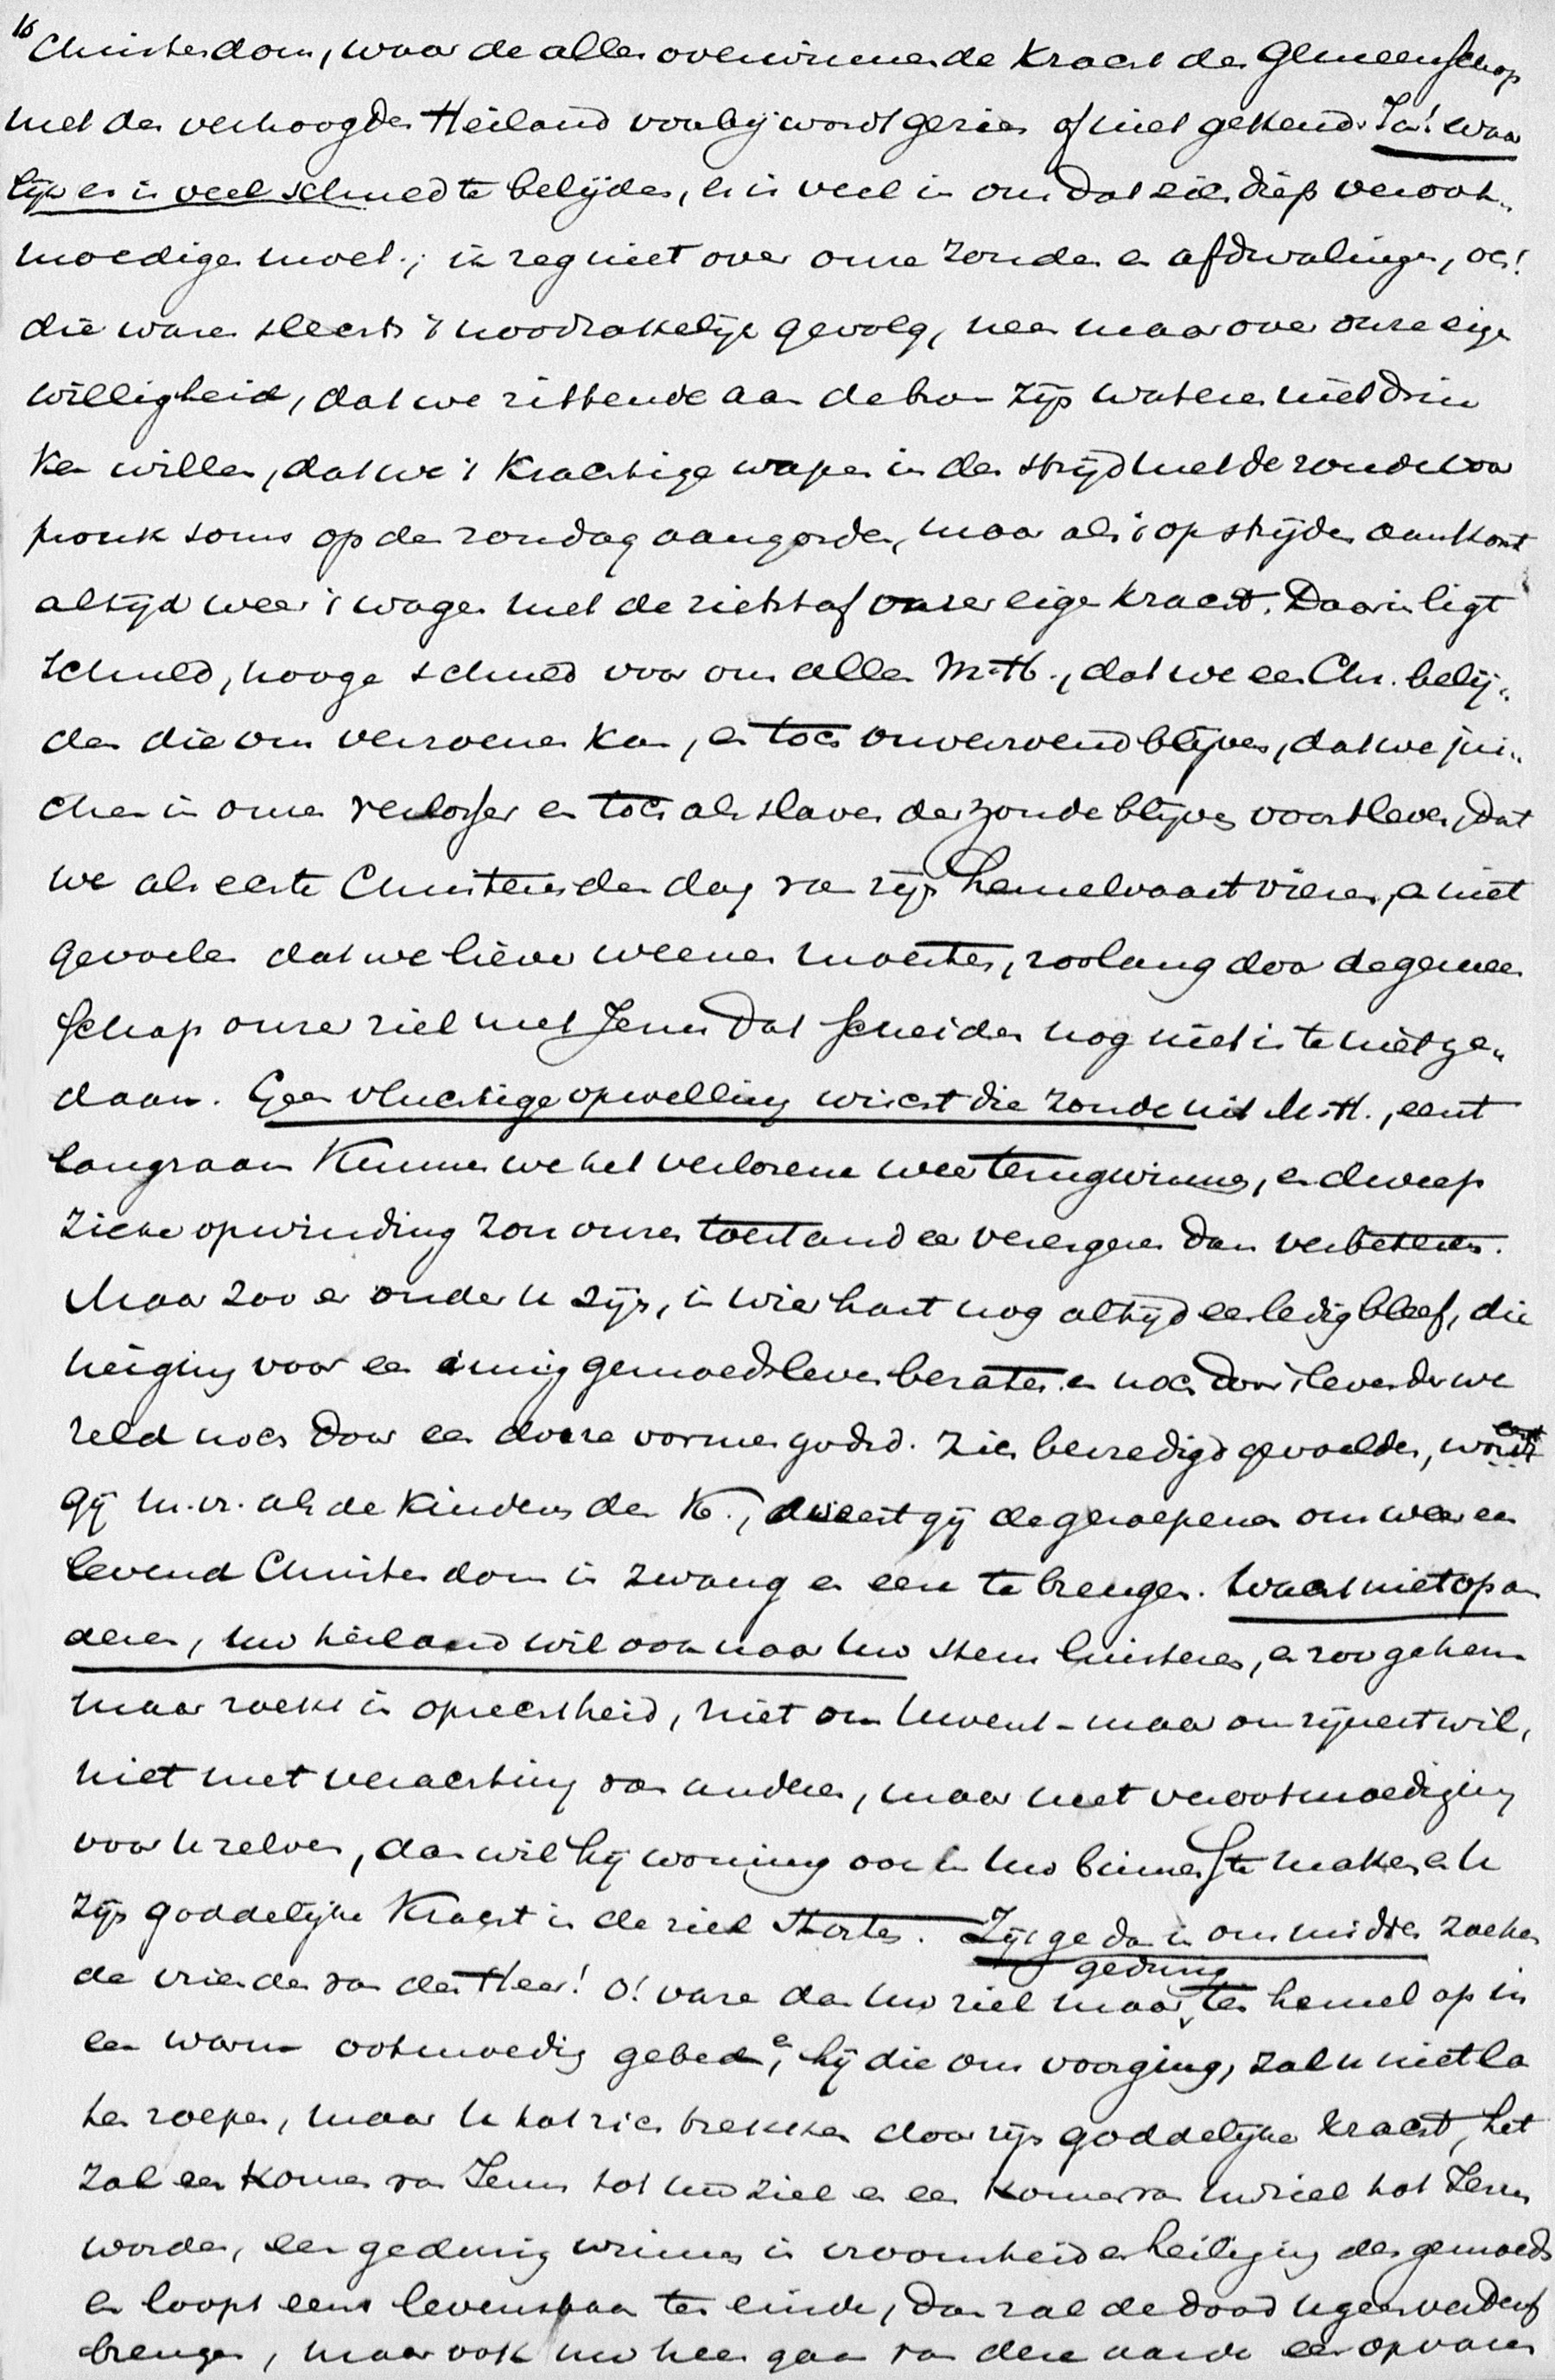 16
Christendom, waar de alles overwinnende kracht der Gemeenschap
met den verhoogden Heiland voorbij wordt gezien of niet gekend. Ja! waar
lijk er is veel schuld te belijden, er is veel in ons dat zich diep veroot„
moedigen moet; ik zeg niet over onze zonden en afdwalingen, och!
die waren slechts 't noodzakelijk gevolg, neen maar over onze eigen
willigheid, dat we zittende aan de bron zijn wateren niet drin
ken willen, dat we 't krachtige wapen in den strijd met de zonde voor
pronk soms op den zondag aangorden, maar als 't op strijden aankomt
altijd weer 't wagen met de rietstaf onzer eigen kracht. Daarin ligt
schuld, hooge schuld voor ons allen M.H., dat we een Chr. belij„
den die ons verzoenen kan, en toch onverzoend blijven, dat we jui„
chen in onzen verlosser en toch als slaven der zonde blijven voortleven, dat
we als echte Christenen den dag van zijn hemelvaart vieren, en niet
gevoelen dat we liever weenen moesten, zoolang door de gemeen
schap onzer ziel met Jezus dat scheiden nog niet is te niet ge„
daan. Geen vluchtige opwelling wischt die zonde uit M.H., eerst
langzaam kunnen we het verlorene weer terugwinnen, en dweep
zieke opwinding zou onzen toestand eer verergeren dan verbeteren.
Maar zoo er onder u zijn, in wier hart nog altijd een ledig bleef, die
neiging voor een innig gemoedsleven bezaten en noch door 't leven der we
reld noch door een dorre vormen godsd. zich bevredigd gevoelden, weest
gij m.vr. als de kinderen der K., weest gij de geroepenen om weer een
levend Christendom in zwang en eere te brengen. Wacht niet op an
deren, uw heiland wil ook naar uw stem luisteren, en zoo ge hem
maar zoekt in oprechtheid, niet om uwent- maar om zijnentwil,
niet met verachting van anderen, maar met verootmoediging
voor u zelven, dan wil hij woning ook in uw binnenste maken en u
zijn goddelijke kracht in de ziel storten. Zijt ge dan in ons midden zoeken
de vrienden van den Heer! O! vare dan uw ziel maar gedurig ten hemel op in
een warm ootmoedig gebed en, hij die ons voorging, zal u niet la
ten roepen, maar u tot zich trekken door zijn goddelijke kracht, het
zal een komen van Jezus tot uw ziel en een komen van uw ziel tot Jezus
worden, een gedurig winnen in vroomheid en heiliging des gemoeds
en loopt eens levensbaan ten einde, dan zal de dood u geen verderf
brengen, maar ook uw heen gaan van deze aarde een opvaren